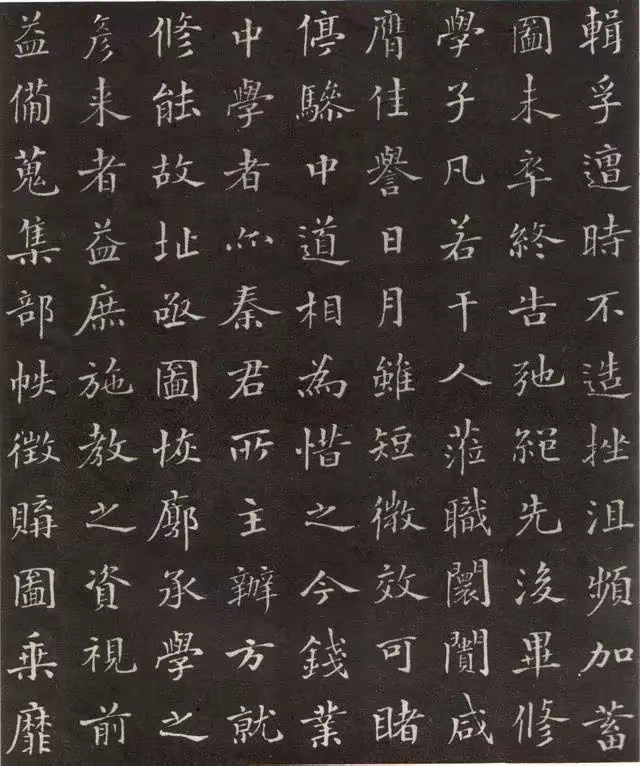 輯孚遭時不造挫沮頻加蓄
圖未卒終告弛絕先後畢修
學子凡若干人蒞職闤闠咸
膺佳譽日月雖短微效可睹
停驂中道相為惜之今錢業
中學者亦秦君所主辦方就
修能故址亟圖恢廓承學之
彥来者益庶施教之資視前
益備蒐集部帙徵購圖乘靡